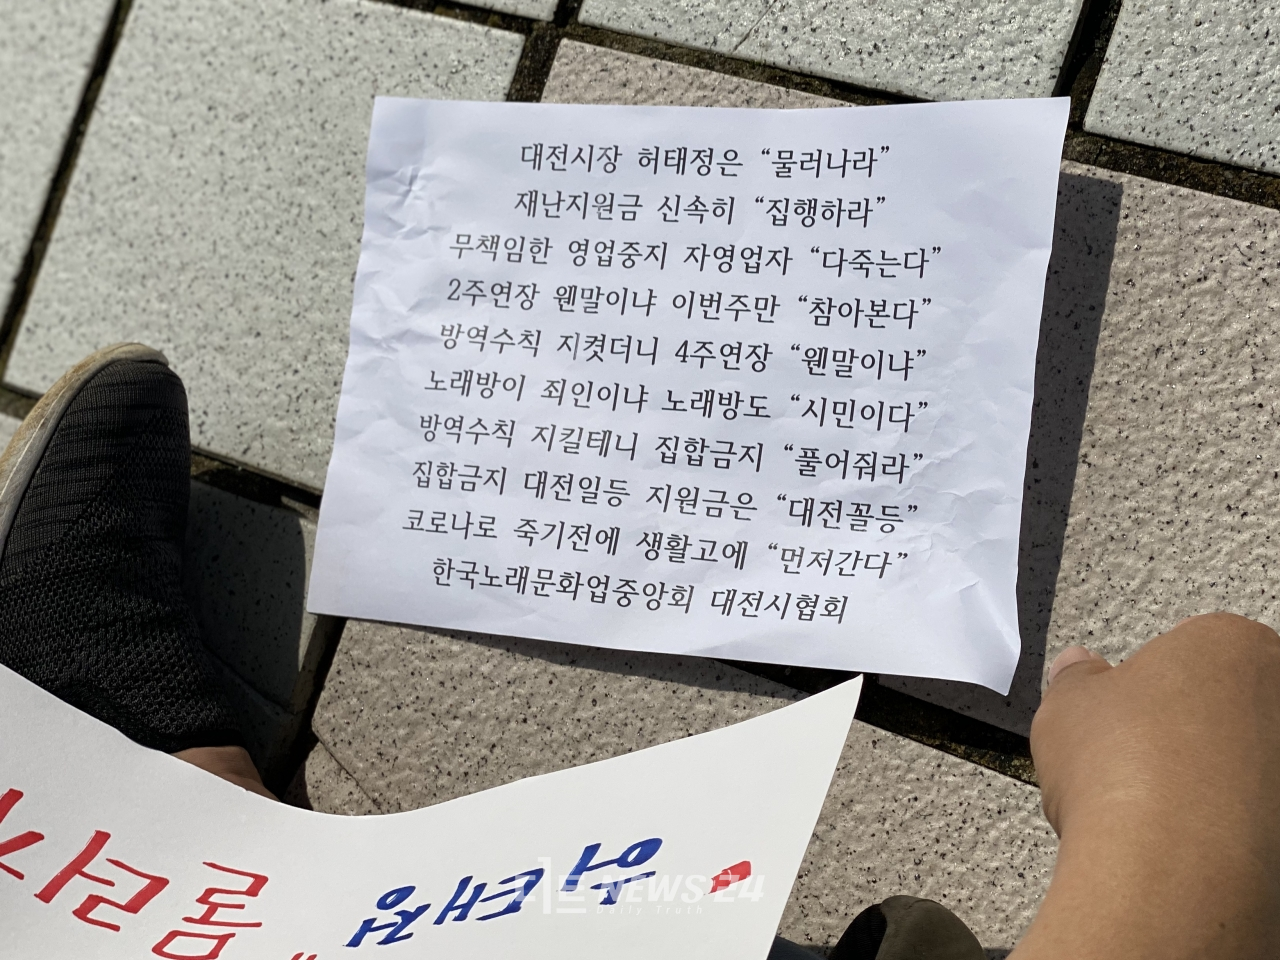 대전시장 허태정은 “물러나라”
재난지원금 신속히 “집행하라”
무책임한 영업중지 자영업자 “다죽는다”
2주연장 웬말이냐 이번주만 “참아본다”
방역수칙 지켯더니 4주연장 “웬말이냐”
노래방이 죄인이냐 노래방도 “시민이다”
방역수칙 지킬테니 집합금지 “풀어줘라”
집합금지 대전일등 지원금은 “대전꼴등”
코로나로 죽기전에 생활고에 “먼저간다”
한국노래문화업중앙회 대전시협회
NEWS 24
Daily Truth